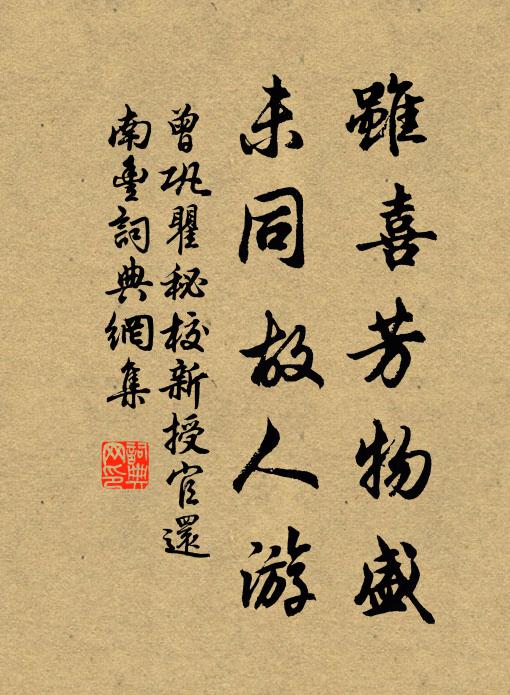 雖喜芳物盛
未同故人游
曾巩瞿秘校新授官還
南豐詞典網集
詞典网印